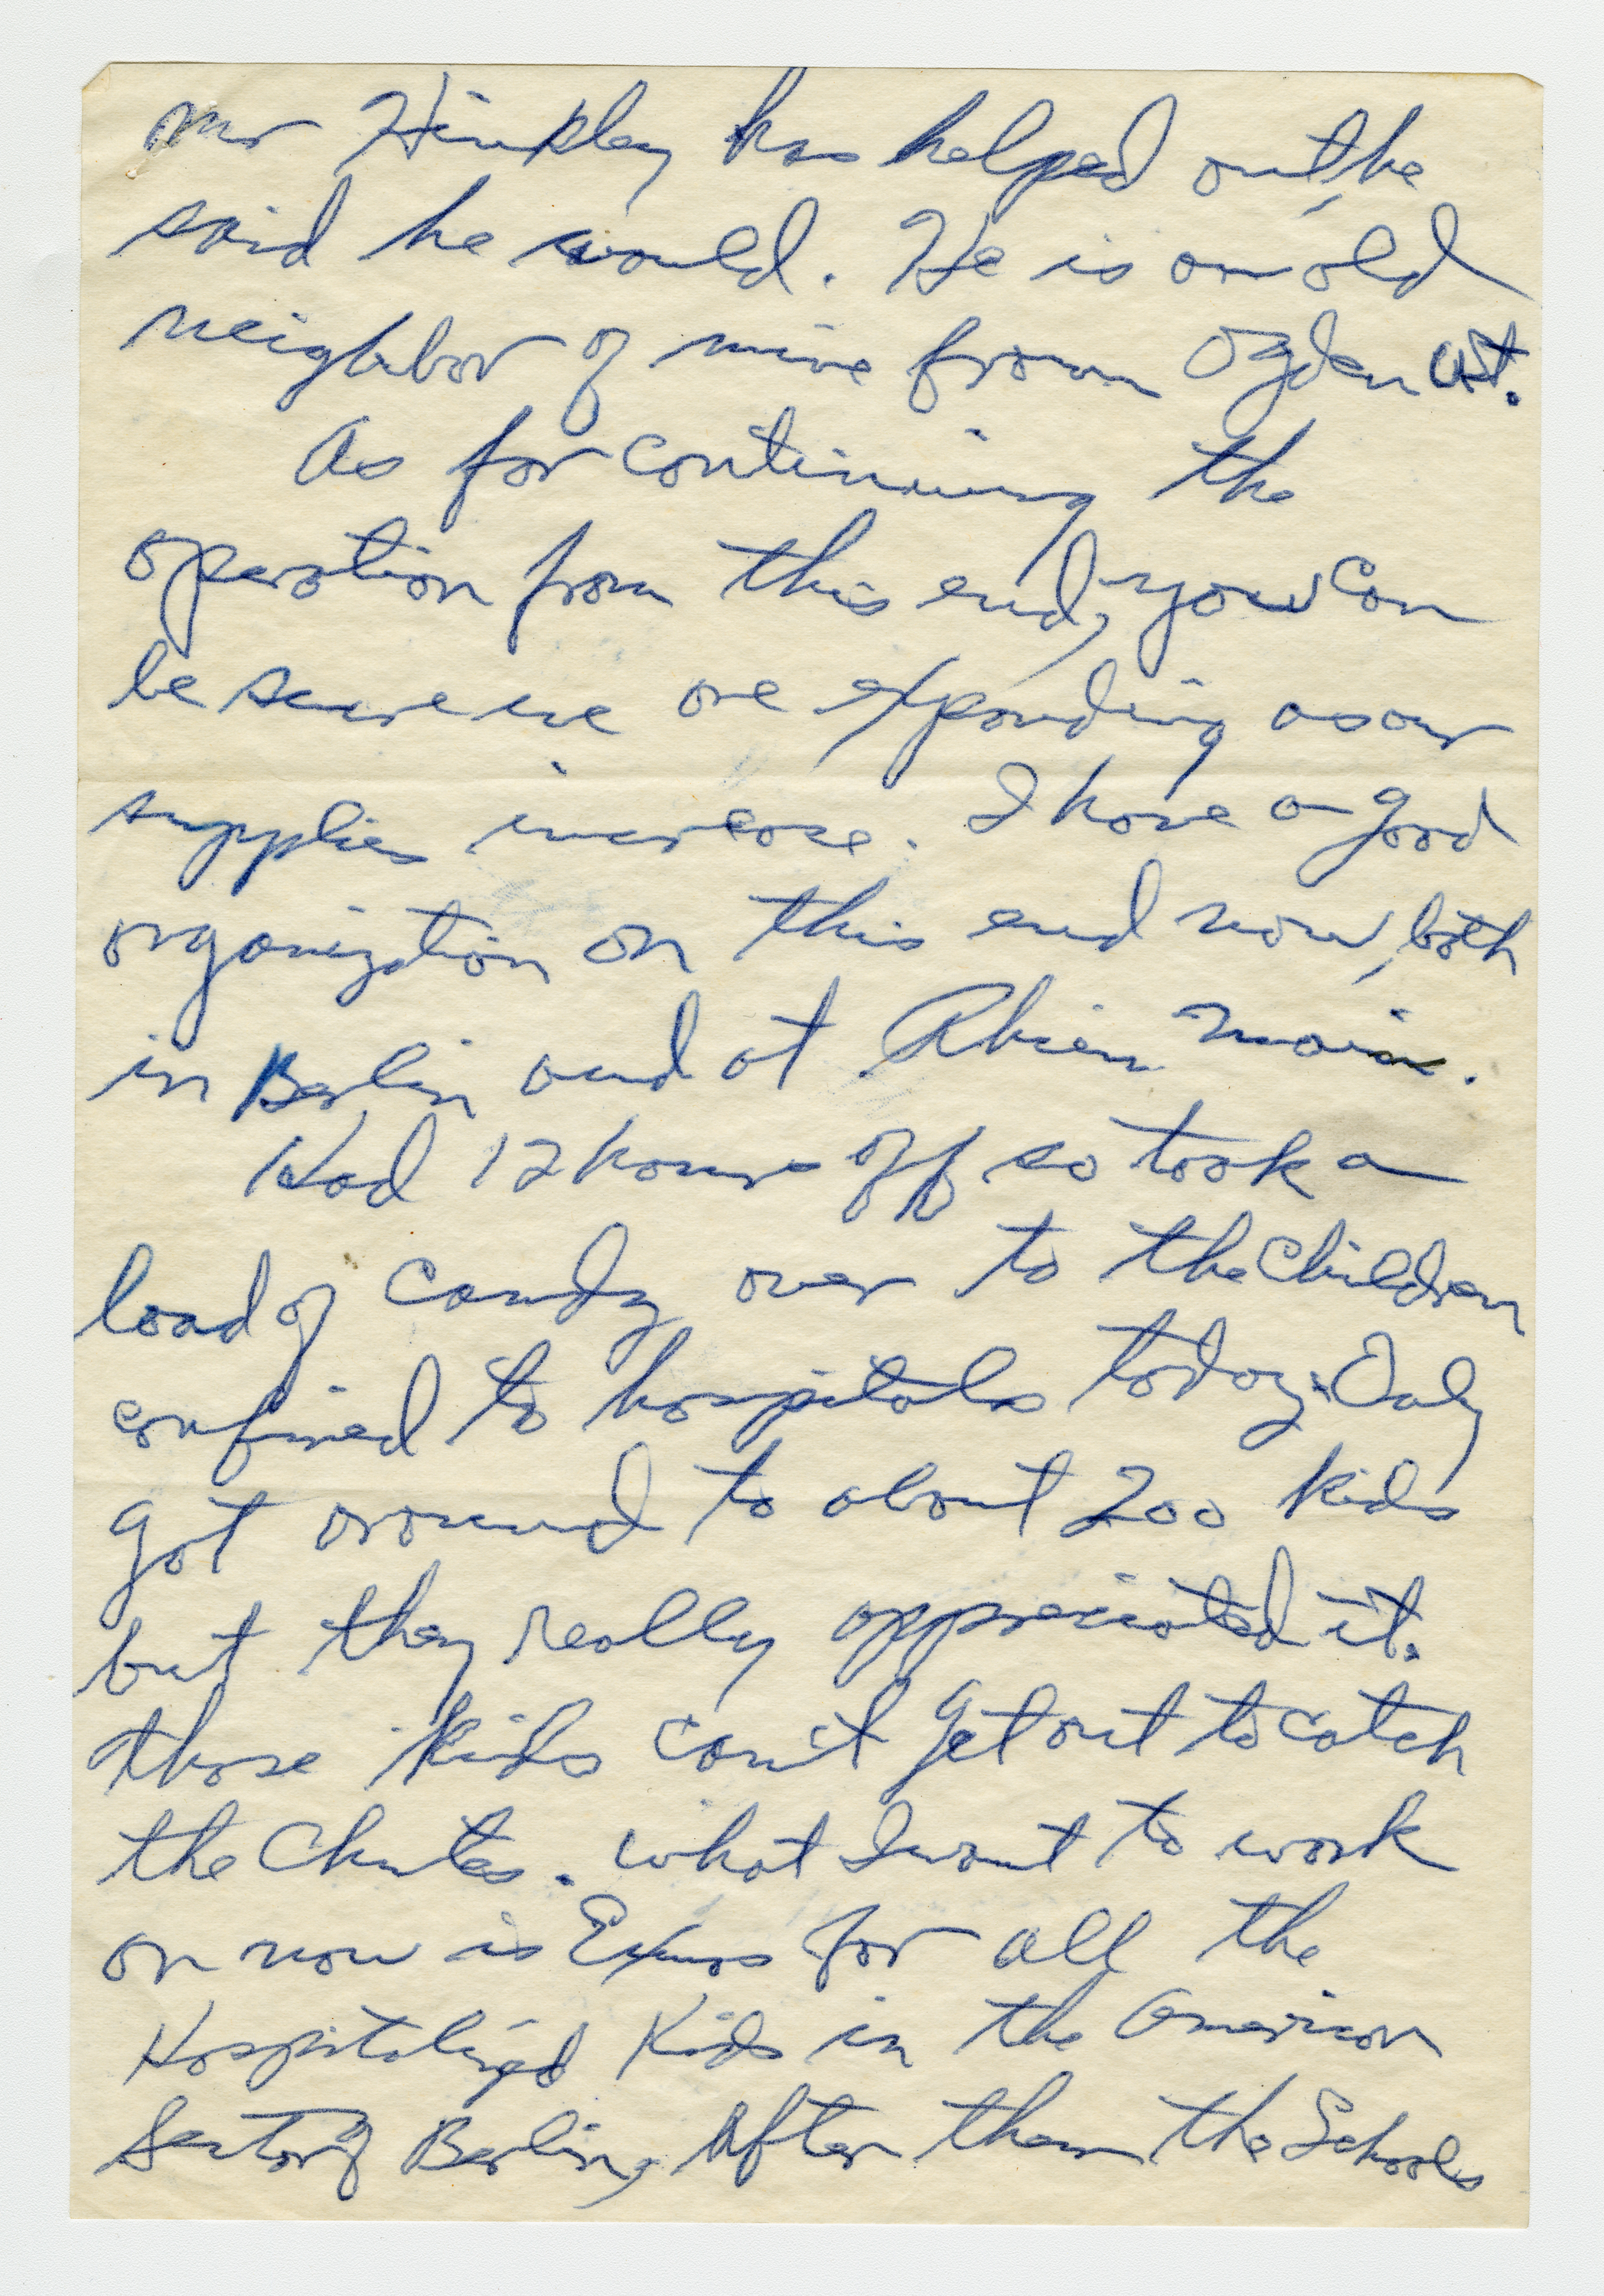 Mr Hinkley has helped out, he
said he would. He is an old
neighbor of mine from Ogden Ut.
As for continuing the
operation from this end, you can
be sure we are expanding as our
supplies increase. I have a good
organization on this end now, both
in Berlin and at Rhien Main.
Had 12 hours off so took a
load of candy over to the children
confined to hospitals today. Only
got around to about 200 kids
but they really appreciated it.
those kids can't get out to catch
the Chutes. What I want to work
on now is Exmas for all the
Hospitalized Kids in the American
Sector of Berlin, After them the Schools